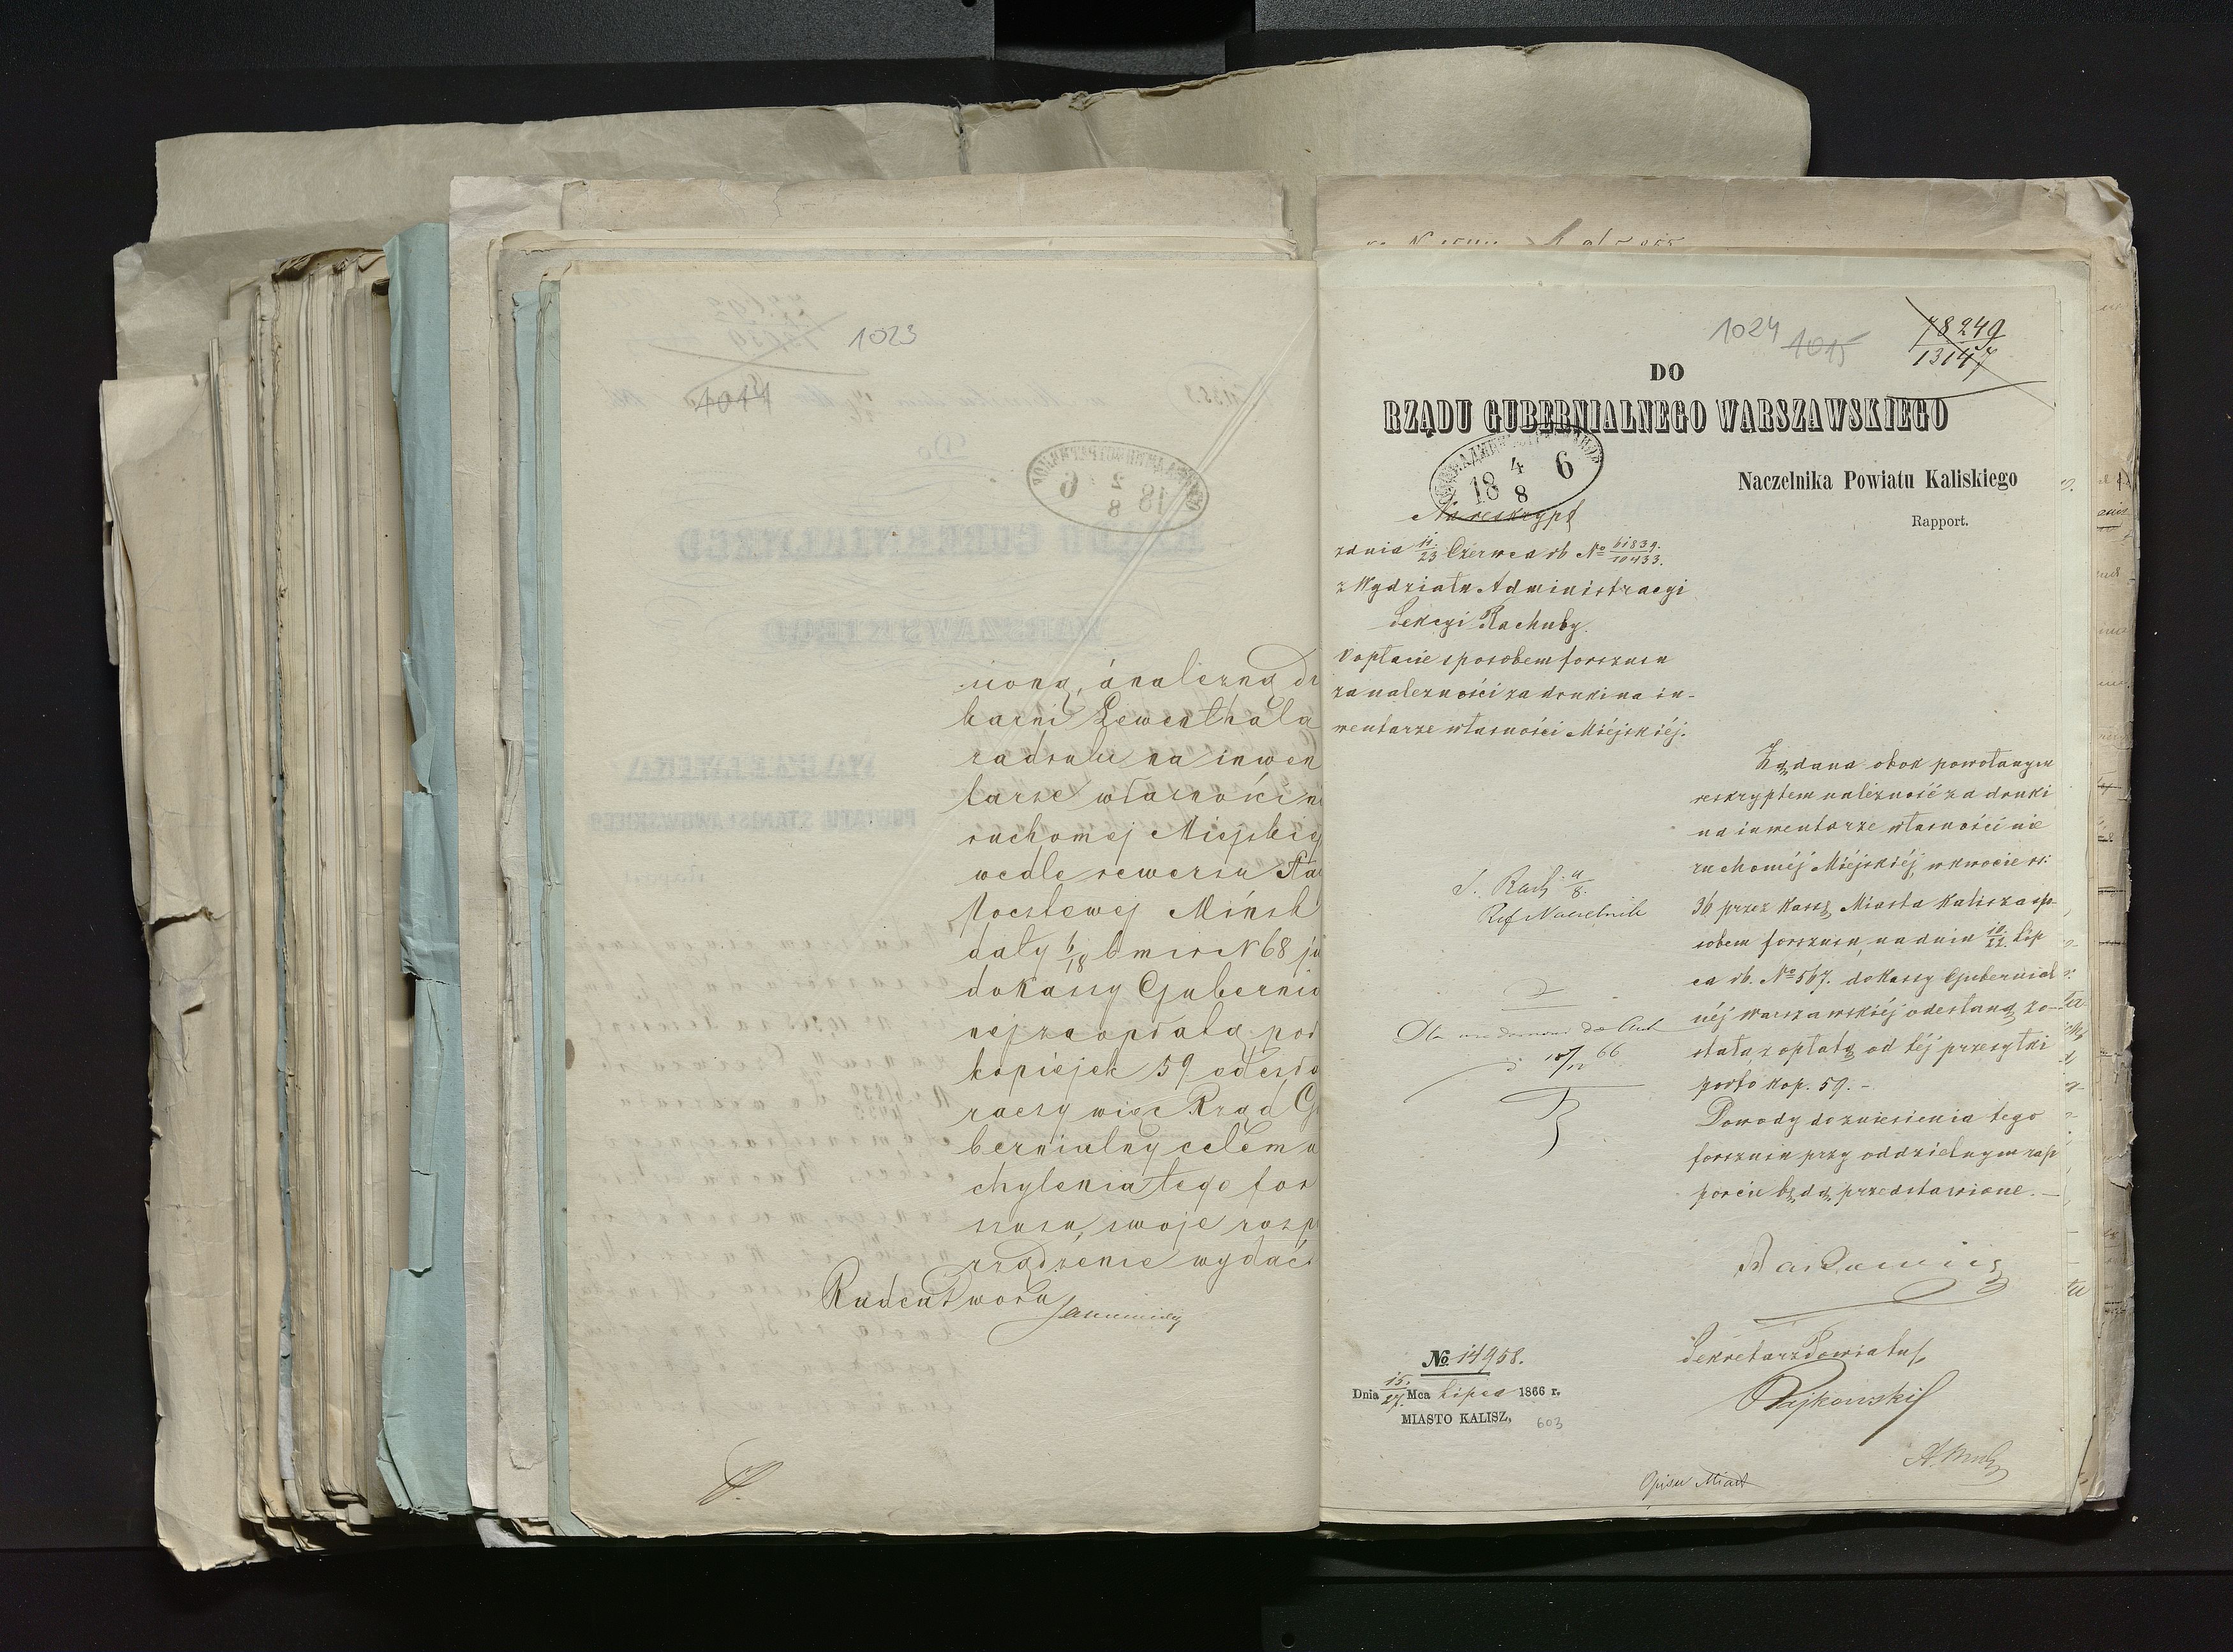 1023
1014
cioną, á należną dr
karni Lewenthala
za druki na inwen
tarze własności ni
ruchomej Miejskiej
wedle rewersu Sta
Pocztowej Mińsk
daty 6/18 b m i r N 68 ju
do Kassy Gubernia
nej za opłatą por
kopiejek 59 odesła
raczy więc Rząd Gu
bernialny celem u
chylenia tego for
szusu, swoje rozp
rządzenie wydać
Radca Dworu
1024 1015
78249
13147
DO
RZĄDU GUBERNIALNEGO WARSZAWSKIEGO
18 4/8 6
Naczelnika Powiatu Kaliskiego
Rapport.
Na reskrypt
z dnia 11/23 Czerwca rb No 61839/10433.
z Wydziału Administracyi
Sekcyi Rachuby.
O opłacie sposobem forszusu
za należności za druki na in-
wentarze własności Miéjskiéj.
Żądana obok powołanym
reskryptem należność za druki
na inwentarze własności nie
ruchoméj Miéjskiéj, w kwocie rs:
36 przez Kassę Miasta Kalisza spo
sobem forszusu, na dniu 10/22 Lip
ca rb. No 567. do Kassy Gubernial
néj Warszawskiéj odesłaną zo-
stała, z opłatą od téj przesyłki
porto kop. 59. -
Dowody do zniesienia tego
forszusu przy oddzielnym rap
porcie będą przedstawione. -
S. Rach 4/8.
Ref Naczelnik
66
Sekretarz Powiatu
Rajkowski
No 14958.
Dnia 15/27. Mca Lipca 1866 r.
MIASTO KALISZ,
603
Opisu Miast